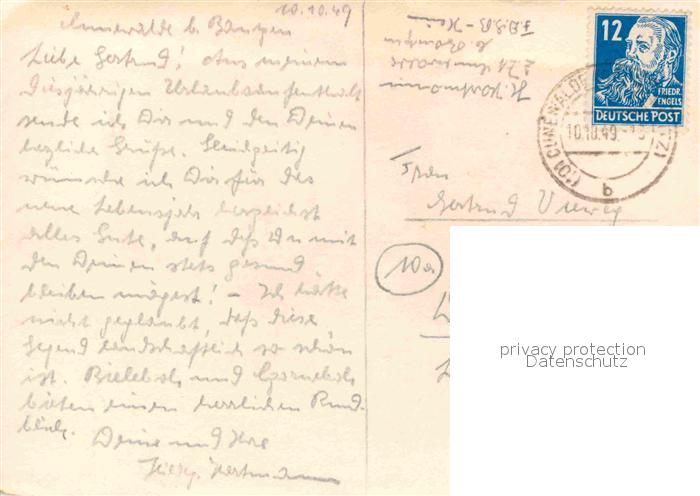 10.10.49
Cunewalde b. Bautzen
Liebe Gertrud! Aus meinem
diesjährigen Urlaubsaufenthalt
sende ich Dir und den Deinen
herzliche Grüße. Gleichzeitig
wünsche ich Dir für das
neue Lebensjahr herzlichst
alles Gute, auf daß Du mit
den Deinen stets gesund
bleiben mögest! – Ich hätte
nicht geglaubt, daß diese
Gegend landschaftlich so schön
ist. Bieleboh und Czorneboh
bieten einen herrlichen Rund-
blick.
Deine und Ihre
Hartmann
H. Hartmann
z. Zt. Cunewalde
b. Bautzen
F.D.G.B-Heim
12
FRIEDR.
ENGELS
DEUTSCHE POST
(10) CUNEWALDE
10.10.49
b
Frau
Gertrud Vieweg
10a
privacy protection
Datenschutz